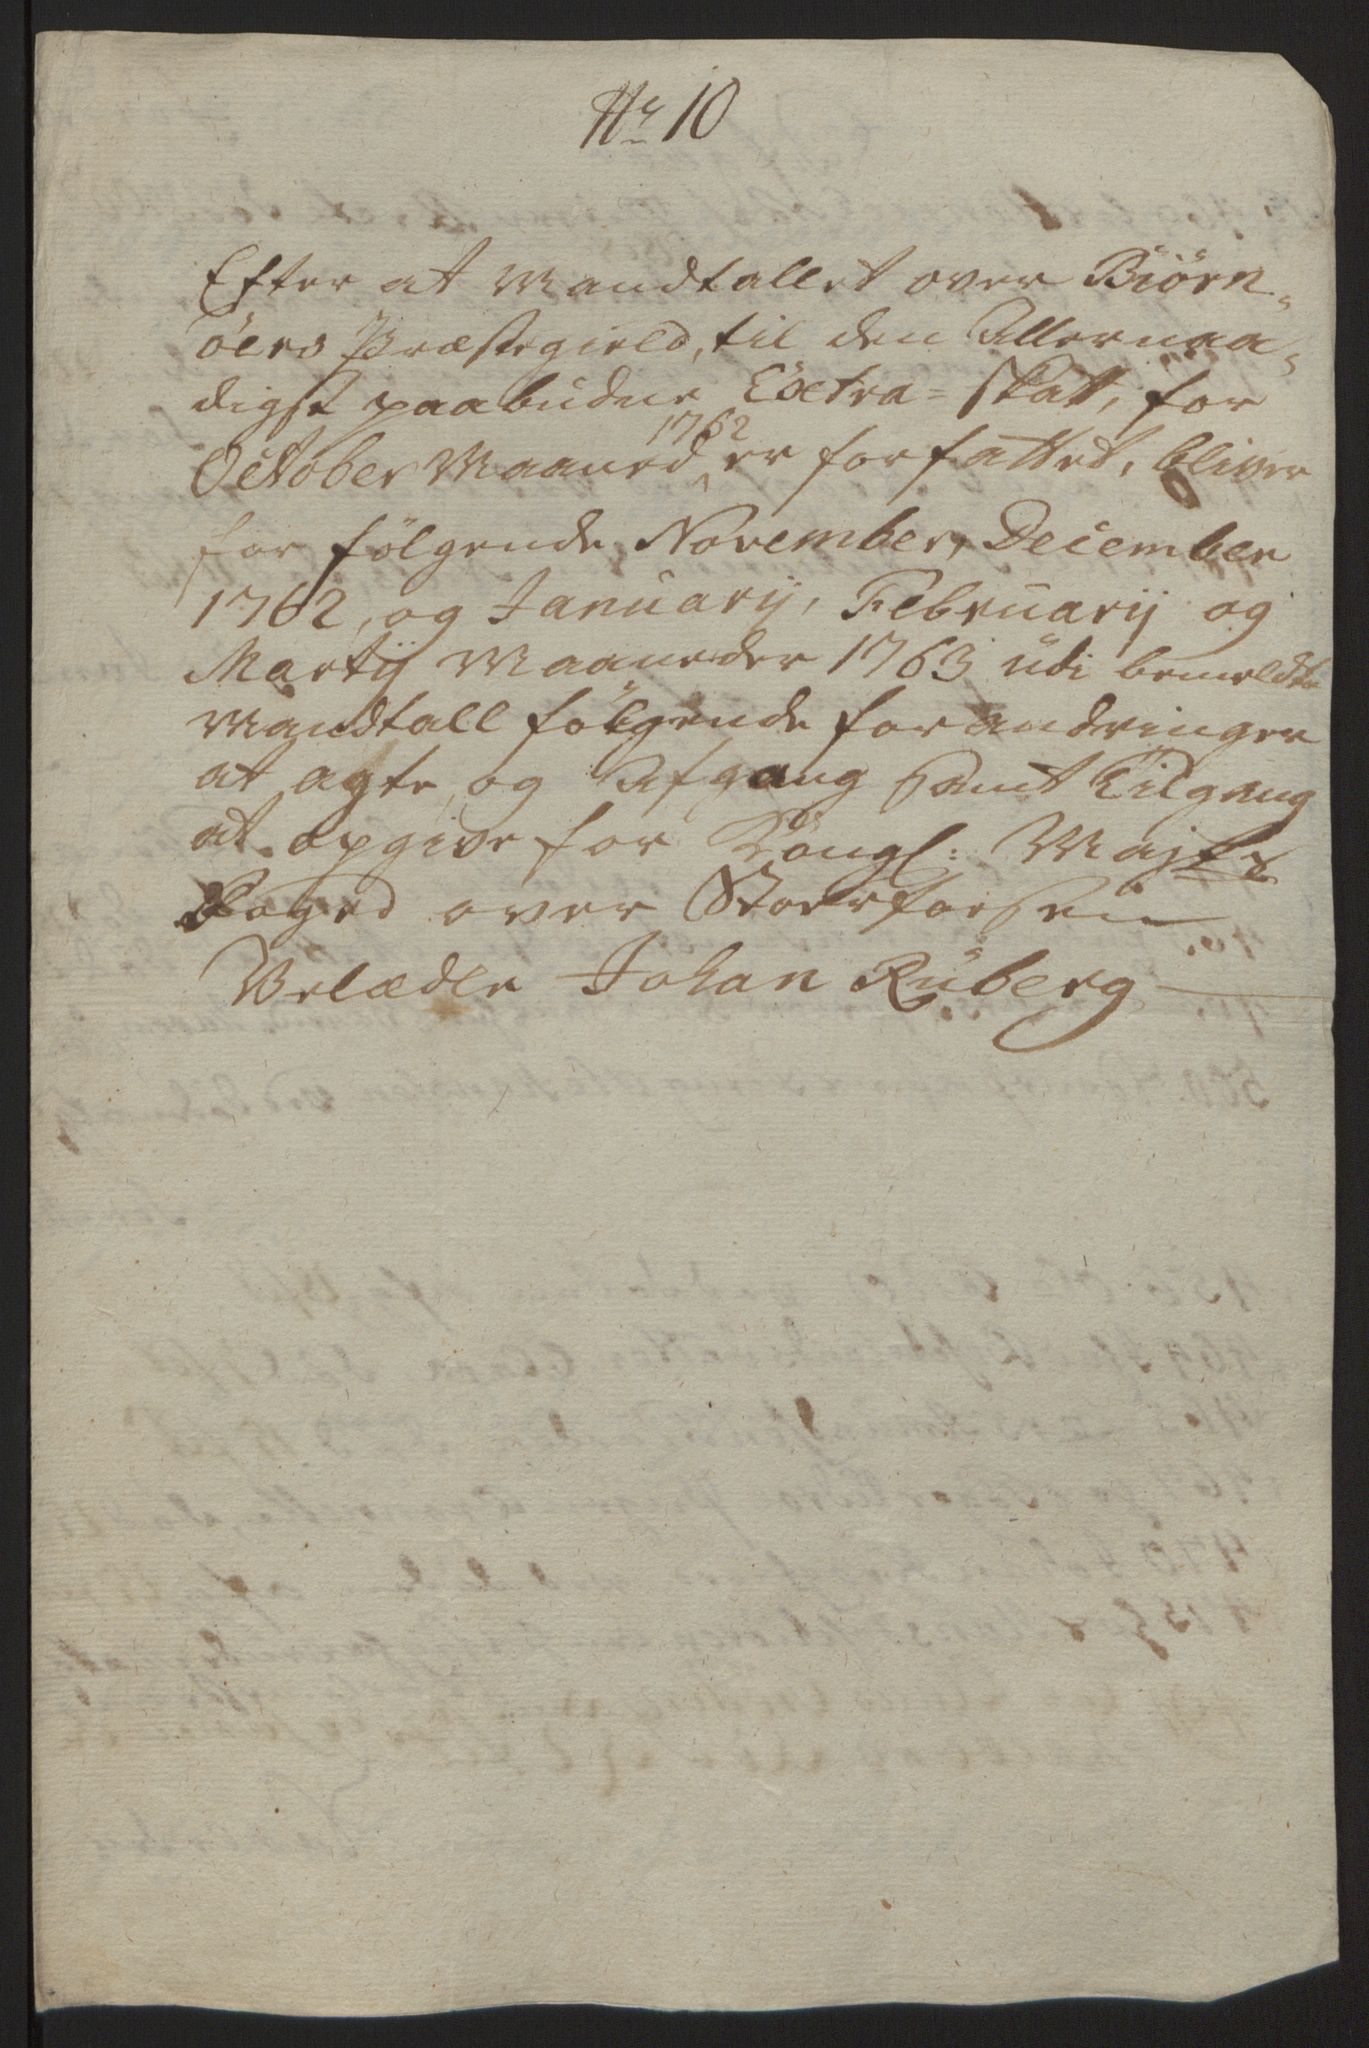 Nr 10
Efter at Mandtallet over Biörn-
öers Præstegield, til den Allernaa-
digst paabudne Extra-Skatt, for
October Maaned 1762 er forfattet, bliver
for fölgende November, December
1762, og Januarij, Februarij og
Martij Maaneder 1763 udi bemeldte
Mandtall fölgende forandringer
at agte, og Afgang samt Tilgang
at opgive for Kongl: Majts
Foged over Stoer Fosen
Velædle Johan Ruberg